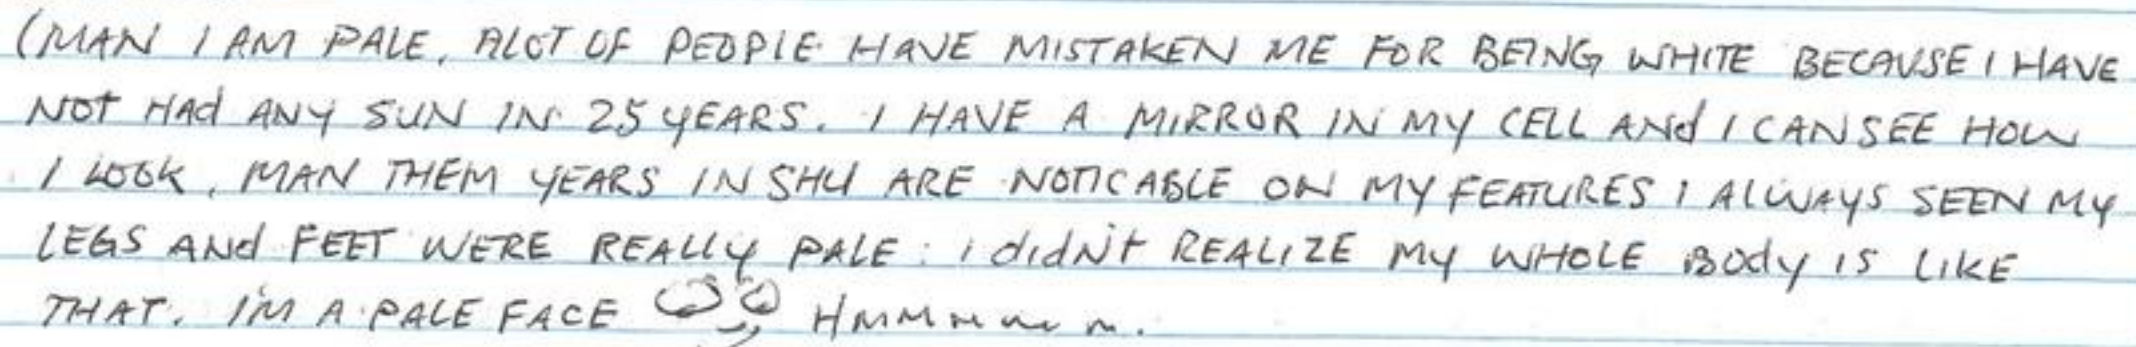 (MAN I AM PALE, ALOT OF PEOPLE HAVE MISTAKEN ME FOR BEING WHITE BECAUSE I HAVE
NOT HAd ANY SUN IN 25 YEARS. I HAVE A MIRROR IN MY CELL ANd I CAN SEE HOW
I LOOK, MAN THEM YEARS IN SHU ARE NOTICABLE ON MY FEATURES I ALWAYS SEEN MY
LEGS ANd FEET WERE REALLY PALE: i didN't REALIZE MY WHOLE Body IS LIKE
THAT. I'M A PALE FACE HMMMMMM.